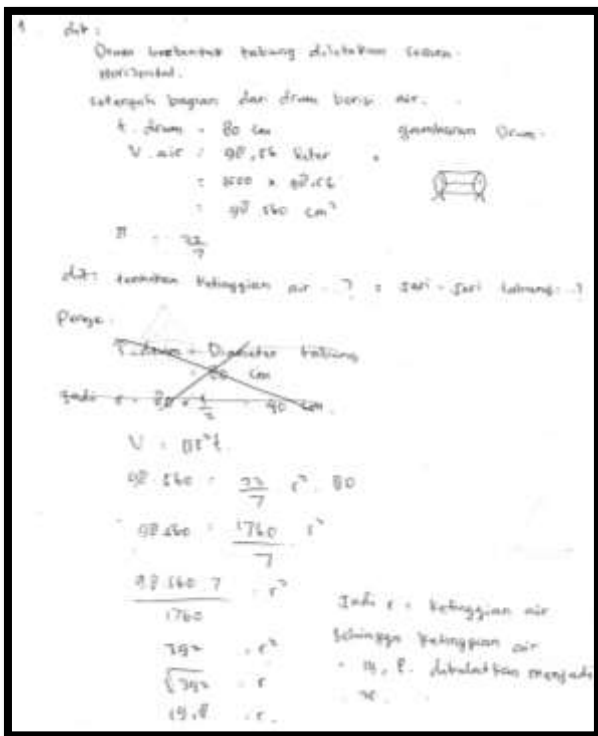 1. dik :
Drum berbentuk tabung diletakan secara
Horizontal.
setengah bagian dari drum berisi air.
t. drum = 80 cm
gambaran Drum.
V. air = 98,56 liter
= 1000 x 98,56
= 98.560 cm³
π = 22/7
dit: tentukan ketinggian air ? = jari-jari tabung ?
Penye.
T. drum = Diameter tabung
= 80 cm
jadi r = 80 x 1/2 = 40 cm.
V = πr²t.
98.560 = 22/7 r² . 80
98.560 = 1760/7 r²
98.560.7/1760 = r²
392 = r²
√392 = r
19,8 = r.
Jadi r = ketinggian air
sehingga ketinggian air
= 19,8. dibulatkan menjadi